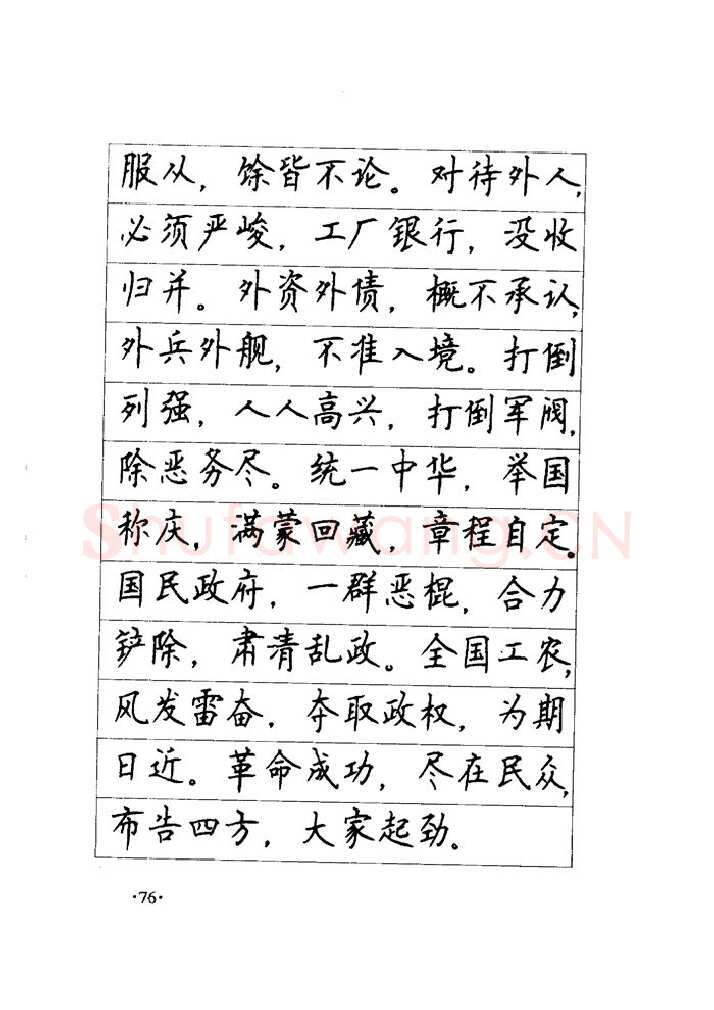 服从，馀皆不论。对待外人，
必须严峻，工厂银行，没收
归并。外资外债，概不承认，
外兵外舰，不准入境。打倒
列强，人人高兴，打倒军阀，
除恶务尽。统一中华，举国
称庆，满蒙回藏，章程自定。
国民政府，一群恶棍，合力
铲除，肃清乱政。全国工农，
风发雷奋，夺取政权，为期
日近。革命成功，尽在民众，
布告四方，大家起劲。
·76·
Shufawang.CN